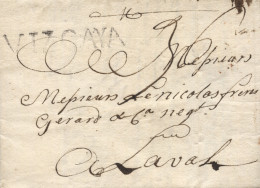 VIZCAYA
Messieurs
Messieurs Lenicolas freres
Gerard & Cª negts
A Laval